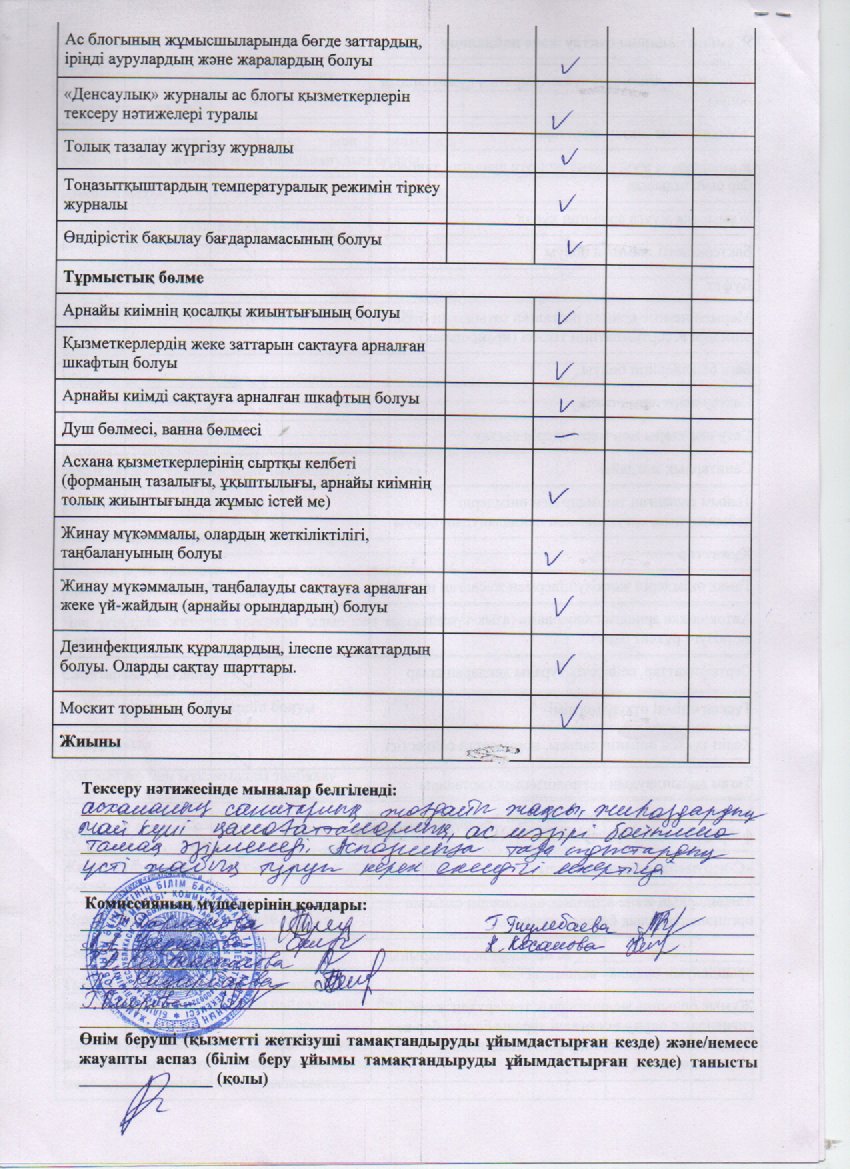 Ас блогының жұмысшыларында бөгде заттардың,
іріңді аурулардың және жаралардың болуы
«Денсаулық» журналы ас блогы қызметкерлерін
тексеру нәтижелері туралы
Толық тазалау жүргізу журналы
Тоңазытқыштардың температуралық режимін тіркеу
журналы
Өндірістік бақылау бағдарламасының болуы
Тұрмыстық бөлме
Арнайы киімнің қосалқы жиынтығының болуы
Қызметкерлердің жеке заттарын сақтауға арналған
шкафтың болуы
Арнайы киімді сақтауға арналған шкафтың болуы
Душ бөлмесі, ванна бөлмесі
Асхана қызметкерлерінің сыртқы келбеті
(форманың тазалығы, ұқыптылығы, арнайы киімнің
толық жиынтығында жұмыс істей ме)
Жинау мүкәммалы, олардың жеткіліктілігі,
таңбалануының болуы
Жинау мүкәммалын, таңбалауды сақтауға арналған
жеке үй-жайдың (арнайы орындардың) болуы
Дезинфекциялық құралдардың, ілеспе құжаттардың
болуы. Оларды сақтау шарттары.
Москит торының болуы
Жиыны
Тексеру нәтижесінде мыналар белгіленді:
асхананың санитарлық жағдайы жақсы, жиһаздардың
жай күйі қанағаттанарлық, ас мәзірі бойынша
тамақ әзірленеді. Аспазшыға таза ыдыстардың
үсті жабық тұруы керек екендігі ескертілді
Комиссияның мүшелерінің қолдары:
Өнім беруші (қызметті жеткізуші тамақтандыруды ұйымдастырған кезде) және/немесе
жауапты аспаз (білім беру ұйымы тамақтандыруды ұйымдастырған кезде) танысты
(қолы)